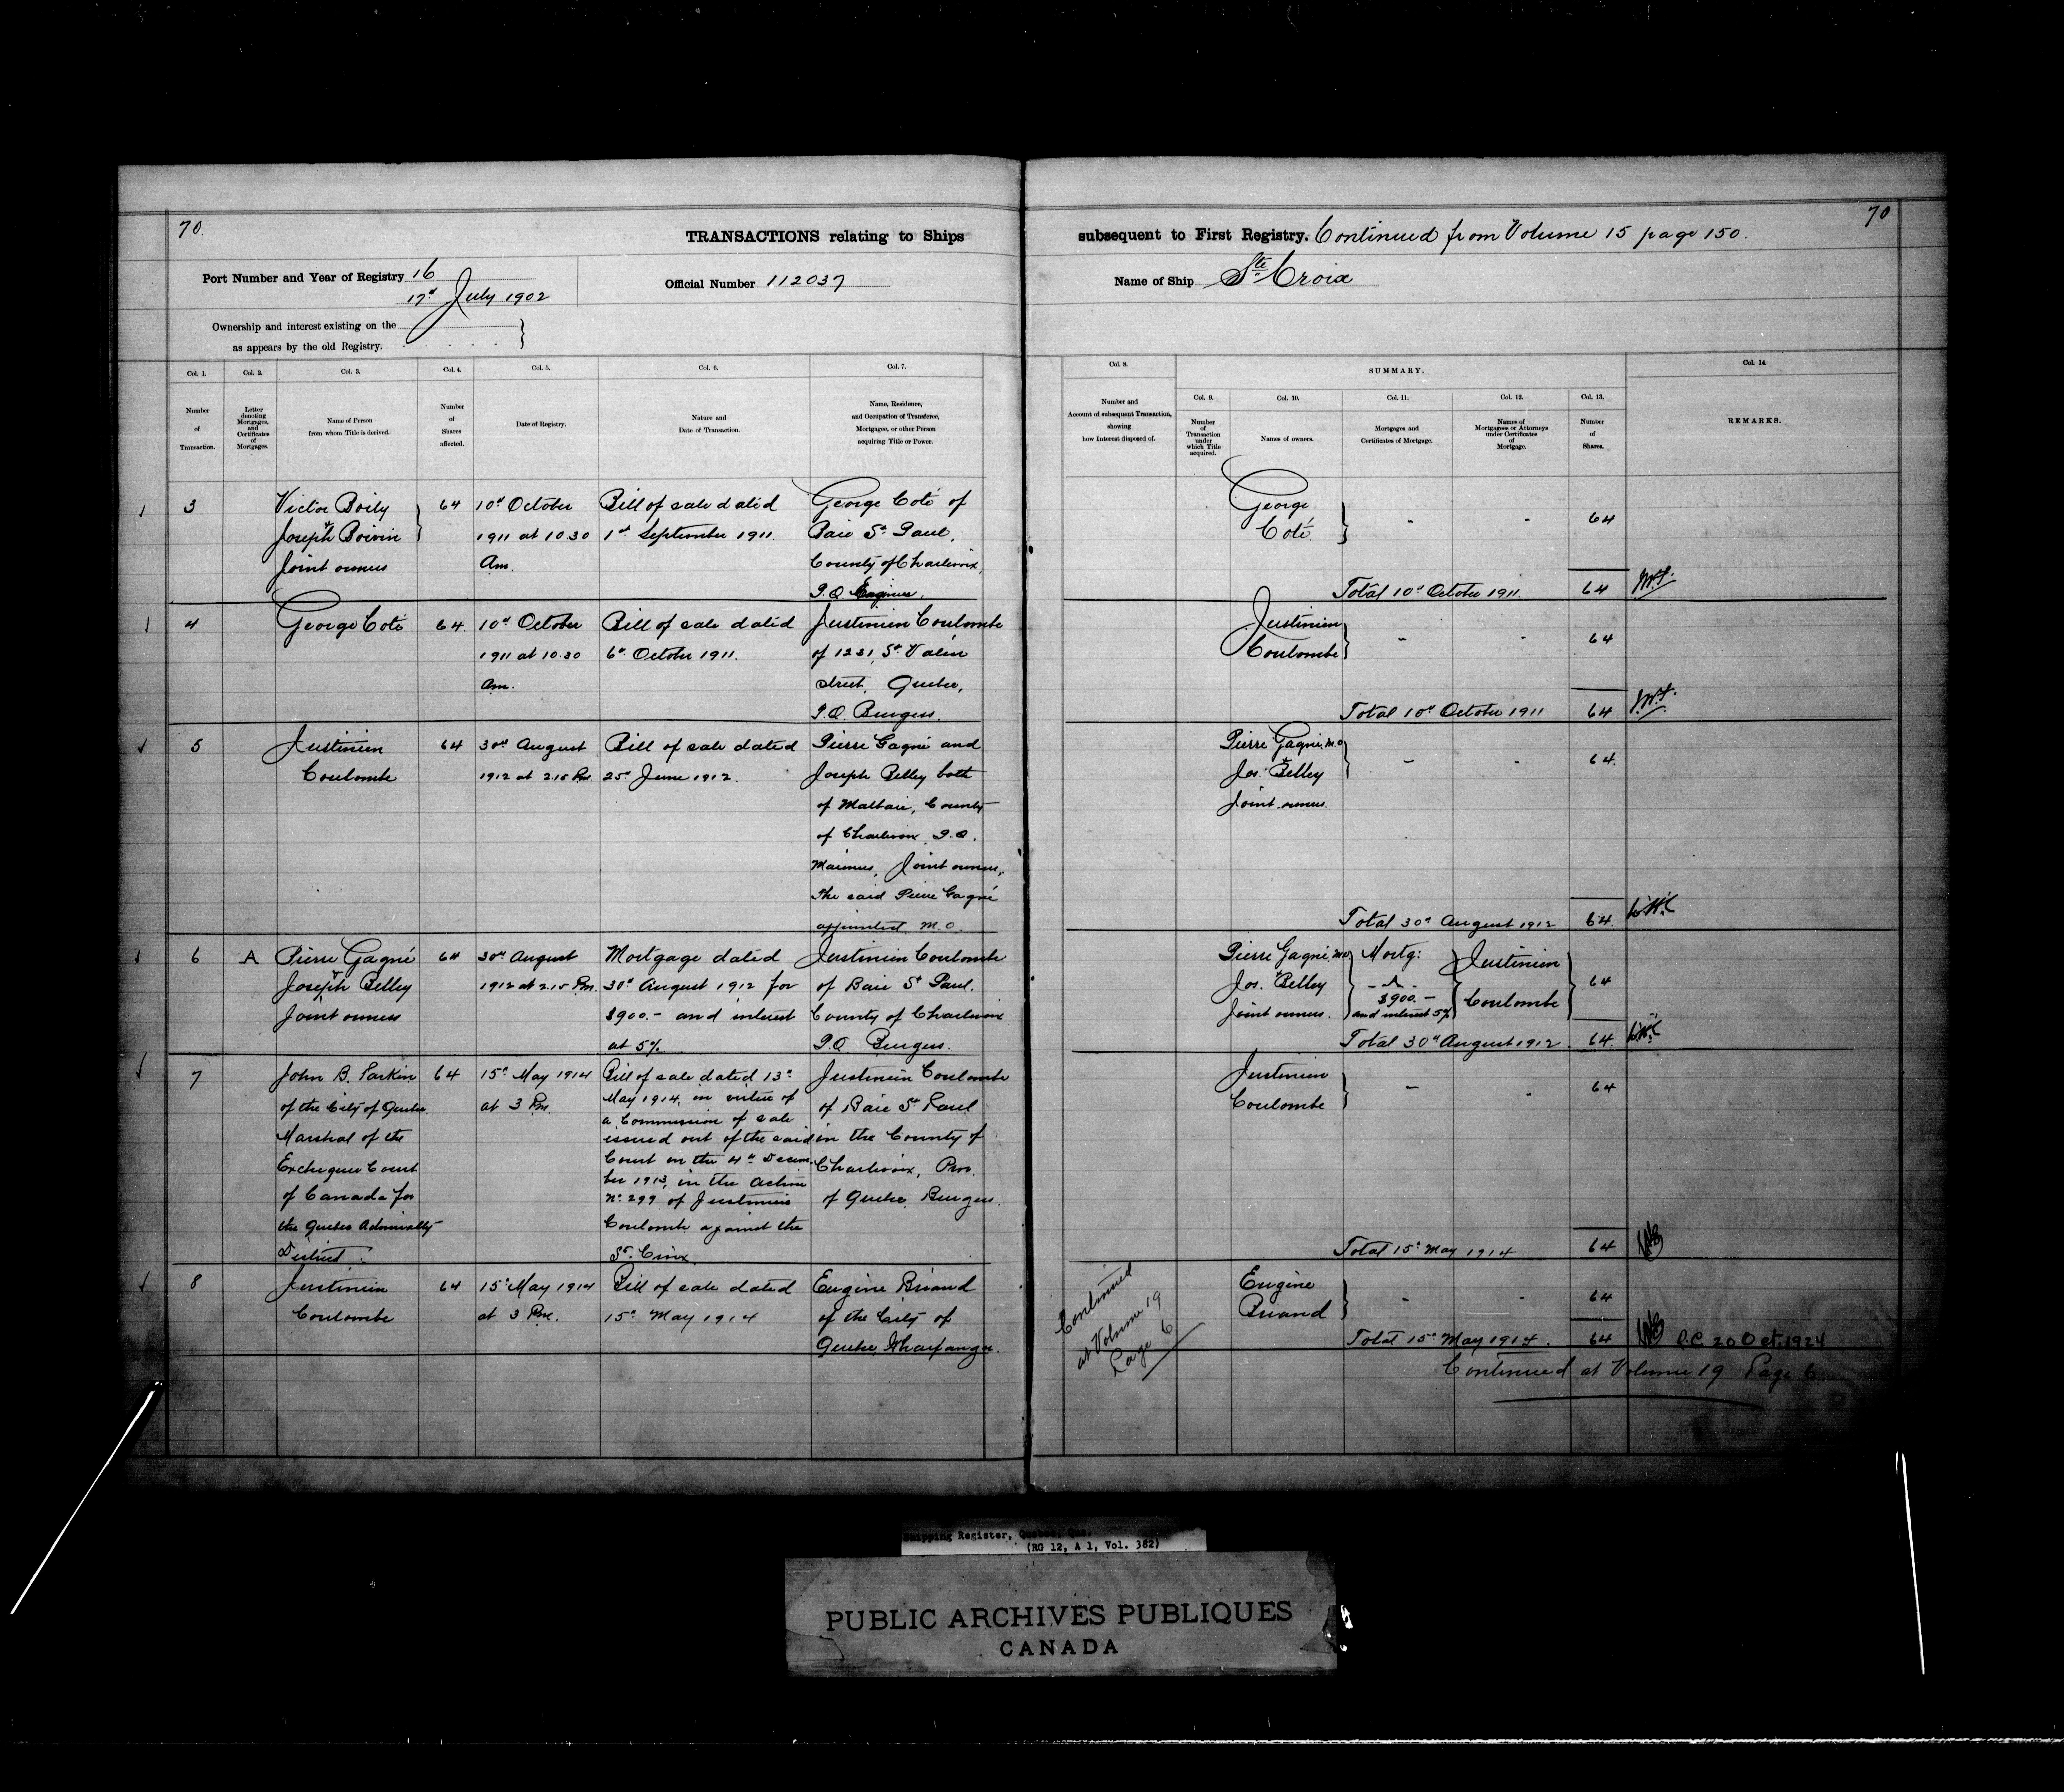 70.
TRANSACTIONS relating to Ships
Port Number and Year of Registry 16
17th July 1902
Official Number 112037
Ownership and interest existing on the
as appears by the old Registry.
Col. 1.
Number
of
Transaction.
Col. 2.
Letter
denoting
Mortgages,
and
Certificates
of
Mortgages.
Col. 3.
Name of Person
from whom Title is derived.
Col. 4.
Number
of
Shares
affected.
Col. 5.
Date of Registry.
Col. 6.
Nature and
Date of Transaction.
Col. 7.
Name, Residence,
and Occupation of Transferee,
Mortgagee, or other Person
acquiring Title or Power.
3
Victor Boily
& Joseph Boivin
Joint owners
64
10th October
1911 at 10.30
Am.
Bill of sale dated
1st September 1911.
George Coté of
Baie St Paul,
County of Charlevoix,
P.Q.
4
George Coté
64
10th October
1911 at 10.30
am.
Bill of sale dated
6th October 1911.
Justinien Coulombe
of 1231, St Valier
street, Quebec,
P.Q. Burgess.
5
Justinien
Coulombe
64
30th August
1912 at 2.15 Pm.
Bill of sale dated
25th June 1912.
Pierre Gagné and
Joseph Belley both
of Malbaie, County
of Charlevoix P.Q.
Mariners, Joint owners,
the said Pierre Gagné
appointed M.O.
6
A
Pierre Gagné
& Joseph Belley
Joint owners
64
30th August
1912 at 2.15 Pm.
Mortgage dated
30th August 1912 for
$900.- and interest
at 5%
Justinien Coulombe
of Baie St Paul.
County of Charlevoix
P.Q Burgess.
7
John B. Parkin
of the City of Quebec
Marshal of the
Exchequer Court
of Canada for
the Quebec Admiralty
District.
64
15th May 1914
at 3 Pm.
Bill of sale dated 13th
May 1914, in virtue of
a Commission of sale
issued out of the said
Court on the 4th Decem
ber 1913, in the Action
No. 299 of Justinien
Coulombe against the
St. Croix
Justinien Coulombe
of Baie St Paul
in the County of
Charlevoix, Prov.
of Quebec Burgess.
8
Justinien
Coulombe
64
15th May 1914
at 3 Pm.
Bill of sale dated
15th May 1914
Eugène Briand
of the City of
Quebec, Wharfinger.
70
subsequent to First Registry. Continued from Volume 15 page 150.
Name of Ship Ste Croix
Col. 8.
Number and
Account of subsequent Transaction,
showing
how Interest disposed of.
SUMMARY.
Col. 9.
Number
of
Transaction
under
which Title
acquired.
Col. 10.
Names of owners.
Col. 11.
Mortgages and
Certificates of Mortgage.
Col. 12.
Names of
Mortgagees or Attorneys
under Certificates
of
Mortgage.
Col. 13.
Number
of
Shares.
Col. 14.
REMARKS.
George
Coté
- - 64
Total 10th October 1911. 64
Justinien
Coulombe
- - 64
Total 10th October 1911 64
Pierre Gagné, M.O
& Jos. Belley
Joint owners.
- - 64.
Total 30th August 1912 64.
Pierre Gagné, M.O
& Jos. Belley
Joint owners.
Mortg:
- A -
$900.-
and interest 5%
Justinien
Coulombe
64
Total 30th August 1912. 64.
Justinien
Coulombe
- - 64
Total 15th May 1914 64
Continued
at Volume 19
Page 6
Eugène
Briand
- - 64
Total 15th May 1914. 64
R.C. 20 Oct. 1924
Continued at Volume 19 Page 6.
Shipping Register, Quebec, Que.
(RG 12, A 1, Vol. 382)
PUBLIC ARCHIVES PUBLIQUES
CANADA